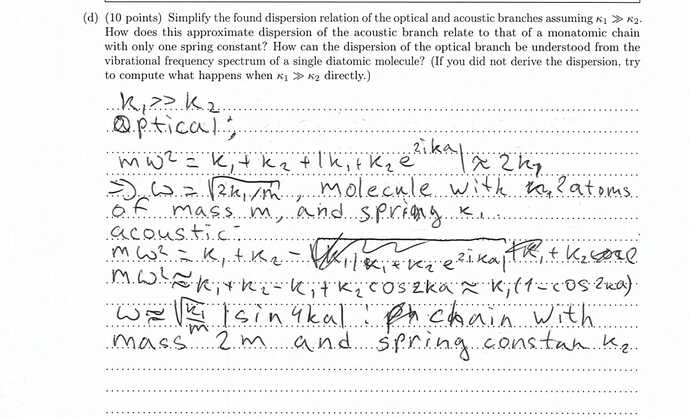 (d) (10 points) Simplify the found dispersion relation of the optical and acoustic branches assuming κ₁ ≫ κ₂.
How does this approximate dispersion of the acoustic branch relate to that of a monatomic chain
with only one spring constant? How can the dispersion of the optical branch be understood from the
vibrational frequency spectrum of a single diatomic molecule? (If you did not derive the dispersion, try
to compute what happens when κ₁ ≫ κ₂ directly.)
k₁ >> k₂
Optical:
mω² = k₁ + k₂ + |k₁ + k₂ e^{2ika}| ≈ 2k₁
=> ω = √(2k₁/m), molecule with 2 atoms
of mass m, and spring κ₁.
acoustic:
mω² = κ₁ + κ₂ - |κ₁ + κ₂ e^{2ika}|
mω² ≈ κ₁ + κ₂ - κ₁ + κ₂ cos 2ka ≈ κ₁(1 - cos 2ka)
ω ≈ √(κ₁/m) |sin 4ka| : chain with
mass 2m and spring constan κ₂